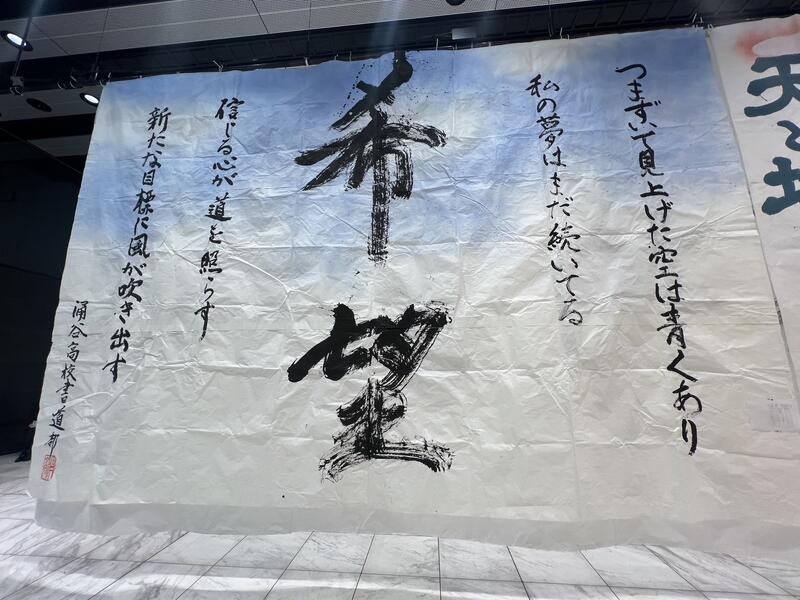 つまずいて見上げた空は青くあり
私の夢はまだ続いてる
希望
信じる心が道を照らす
新たな目標に風が吹き出す
涌谷高校書道部
天と地